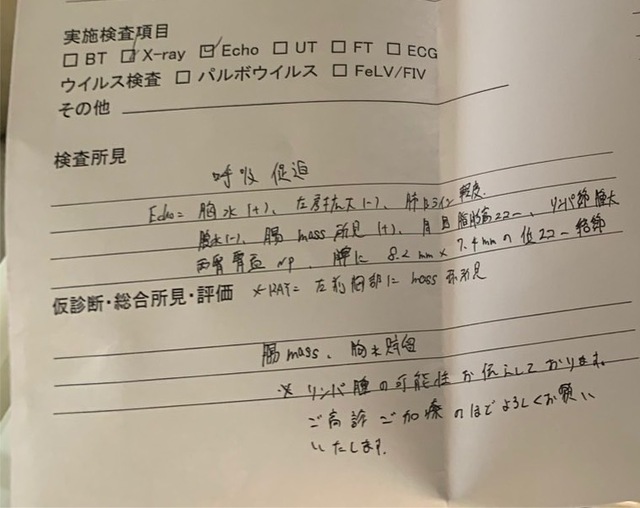 実施検査項目
□ BT ☑ X-ray ☑ Echo □ UT □ FT □ ECG
ウイルス検査 □ パルボウイルス □ FeLV/FIV
その他
検査所見
呼吸促迫
Echo= 胸水(+)、左房拡大(-)、肺Bライン軽度.
腹水(-)、腸mass所見(+)、周囲脂肪高エコー、リンパ節腫大
両腎腎盂 NP、脾に 8.2mm×7.4mmの低エコー結節
仮診断・総合所見・評価 X-RAY= 左前胸部に mass 様所見
腸mass、胸水貯留
※ リンパ腫の可能性お伝えしております。
ご高診ご加療のほどよろしくお願い
いたします.